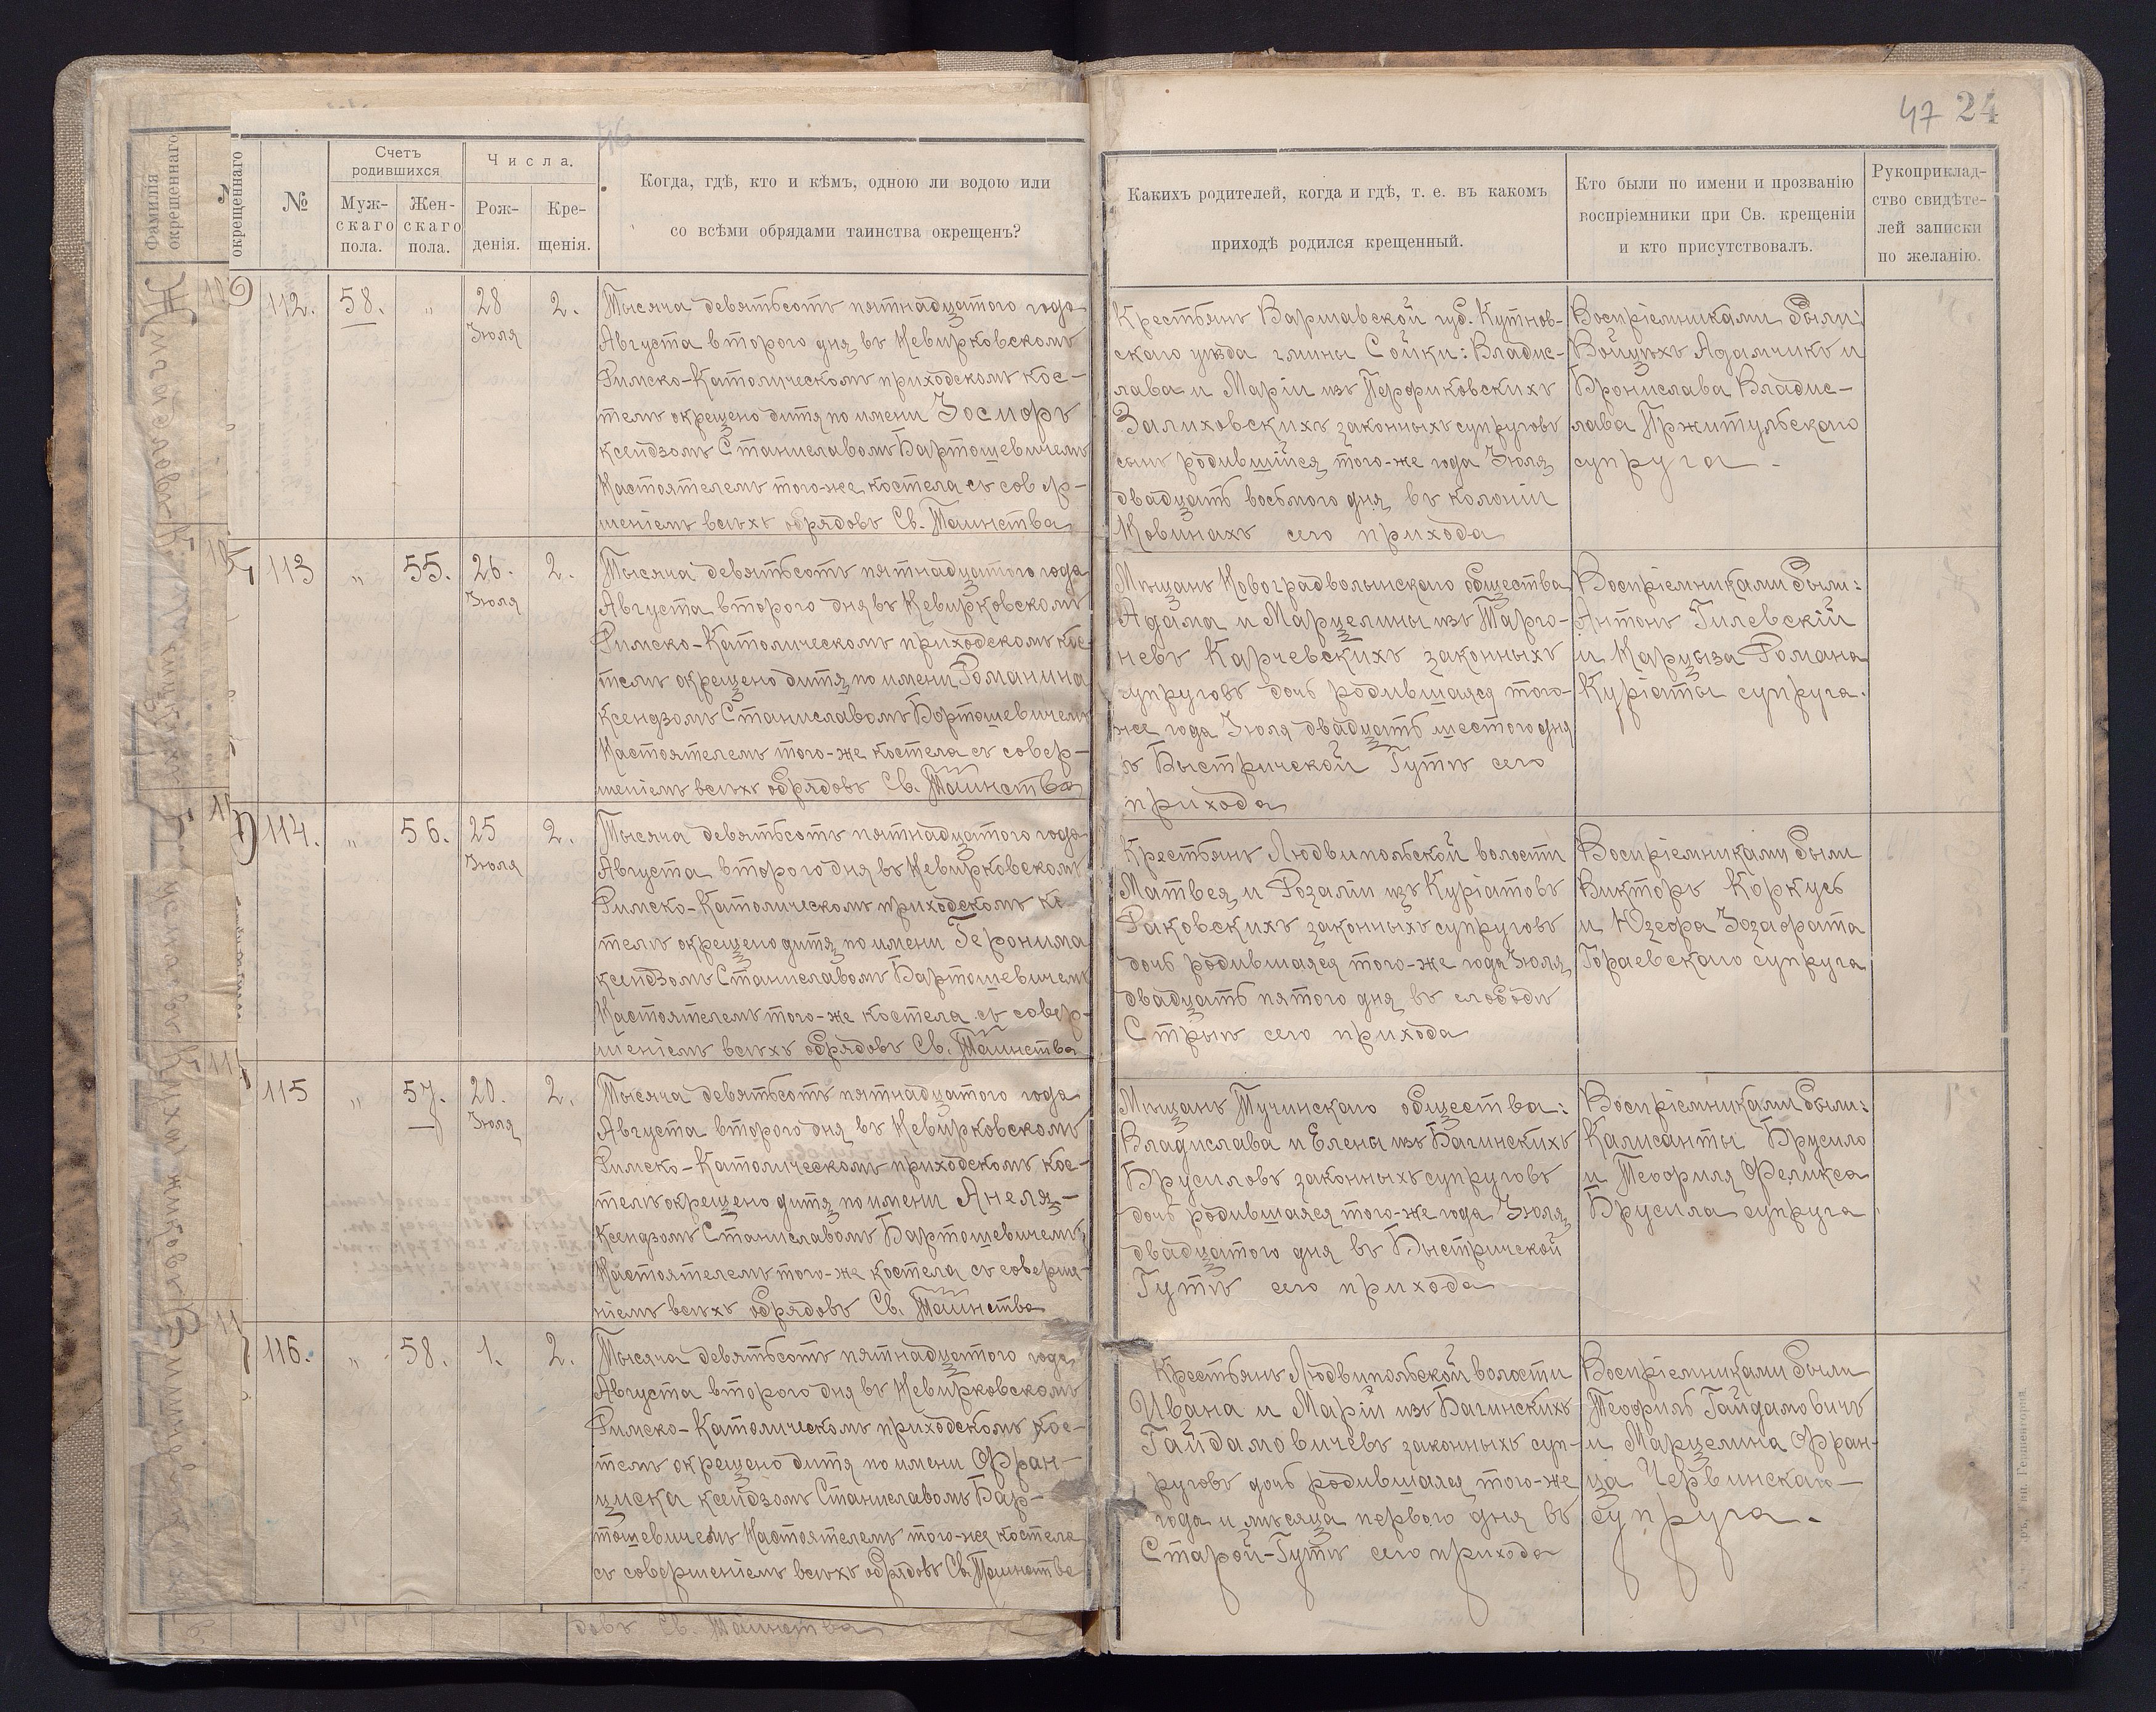 47 24
46
Фамилія окрещеннаго
окрещеннаго
№
Счетъ родившихся
Мужскаго пола.
Женскаго пола.
Числа.
Рожденія.
Крещенія.
Когда, гдѣ, кто и кѣмъ, одною ли водою или
со всѣми обрядами таинства окрещенъ?
Какихъ родителей, когда и гдѣ, т. е. въ какомъ
приходѣ родился крещенный.
Кто были по имени и прозванію
воспріемники при Св. крещеніи
и кто присутствовалъ.
Рукоприклад-
ство свидѣте-
лей записки
по желанію.
112. 58. „ 28 Іюля 2.
Тысяча девятьсотъ пятнадцатого года
Августа второго дня въ Невирковскомъ
Римско-Католическомъ приходскомъ кос-
телѣ окрещено дитя по имени
ксендзомъ Станиславомъ Бартошевичемъ
Настоятелемъ того-же костела съ совер-
шеніемъ всѣхъ обрядовъ Св. Таинства
Крестьянъ Варшавской губ. Кутнов-
скаго уѣзда гмины Сойки: Владис-
лава и Маріи изъ
Залиховскихъ законныхъ супруговъ
сынъ родившійся того-же года Іюля
двадцать восьмого дня въ колоніи
сего прихода
Воспріемниками были:
Войцѣхъ Адамчикъ и
Бронислава Владис-
лава Пржитульскаго
супруга.
113 „ 55. 26. Іюля 2.
Тысяча девятьсотъ пятнадцатого года
Августа второго дня въ Невирковскомъ
Римско-Католическомъ приходскомъ кос-
телѣ окрещено дитя по имени Романина
ксендзомъ Станиславомъ Бартошевичемъ
Настоятелемъ того-же костела съ совер-
шеніемъ всѣхъ обрядовъ Св. Таинства
Мѣщанъ Новоградволынскаго общества
Адама и Марцелины изъ Тарго-
невъ Карчевскихъ законныхъ
супруговъ дочь родившаяся того-
же года Іюля двадцать шестого дня
въ Быстричской Гутѣ сего
прихода
Воспріемниками были:
Антонъ Гилевскій
и Нарцыза Романа
Куріаты супруга.
114. „ 56. 25 Іюля 2.
Тысяча девятьсотъ пятнадцатого года
Августа второго дня въ Невирковскомъ
Римско-Католическомъ приходскомъ ко-
телѣ окрещено дитя по имени Геронима
ксендзомъ Станиславомъ Бартошевичемъ
Настоятелемъ того-же костела съ совер-
шеніемъ всѣхъ обрядовъ Св. Таинства
Крестьянъ Людвипольской волости
Матвея и Розаліи изъ Куріатовъ
Раковскихъ законныхъ супруговъ
дочь родившаяся того-же года Іюля
двадцать пятого дня въ слободѣ
Стрыѣ сего прихода
Воспріемниками были
Викторъ Коркусь
и Юзефа Іозафата
Гораевскаго супруга
115 „ 57. 20. Іюля 2.
Тысяча девятьсотъ пятнадцатого года
Августа второго дня въ Невирковскомъ
Римско-Католическомъ приходскомъ кос-
телѣ окрещено дитя по имени Анеля-
Ксендзомъ Станиславомъ Бартошевичемъ
Настоятелемъ того-же костела съ соверше-
ніемъ всѣхъ обрядовъ Св. Таинства
Мѣщанъ Тучинскаго общества:
Владислава и Елены изъ Багинскихъ
Брусиловъ законныхъ супруговъ
дочь родившаяся того-же года Іюля
двадцатого дня въ Быстричской
Гутѣ сего прихода
Воспріемниками были:
Калисанты Брусило
и Теофиля Феликса
Брусила супруга
116. „ 58. 1. 2.
Тысяча девятьсотъ пятнадцатого года
Августа второго дня въ Невирковскомъ
Римско-Католическомъ приходскомъ кос-
телѣ окрещено дитя по имени Фран-
циска ксендзомъ Станиславомъ Бар-
тошевичемъ Настоятелемъ того-же костела
съ совершеніемъ всѣхъ обрядовъ Св. Таинства
Крестьянъ Людвипольской волости
Ивана и Маріи изъ Багинскихъ
Гайдамовичевъ законныхъ суп-
руговъ дочь родившаяся того-же
года и мѣсяца первого дня въ
Старой-Гутѣ сего прихода
Воспріемниками были
Теофиль Гайдамовичъ
и Марцелина Фран-
ца Червинскаго
супруга.
довъ Св. Таинства